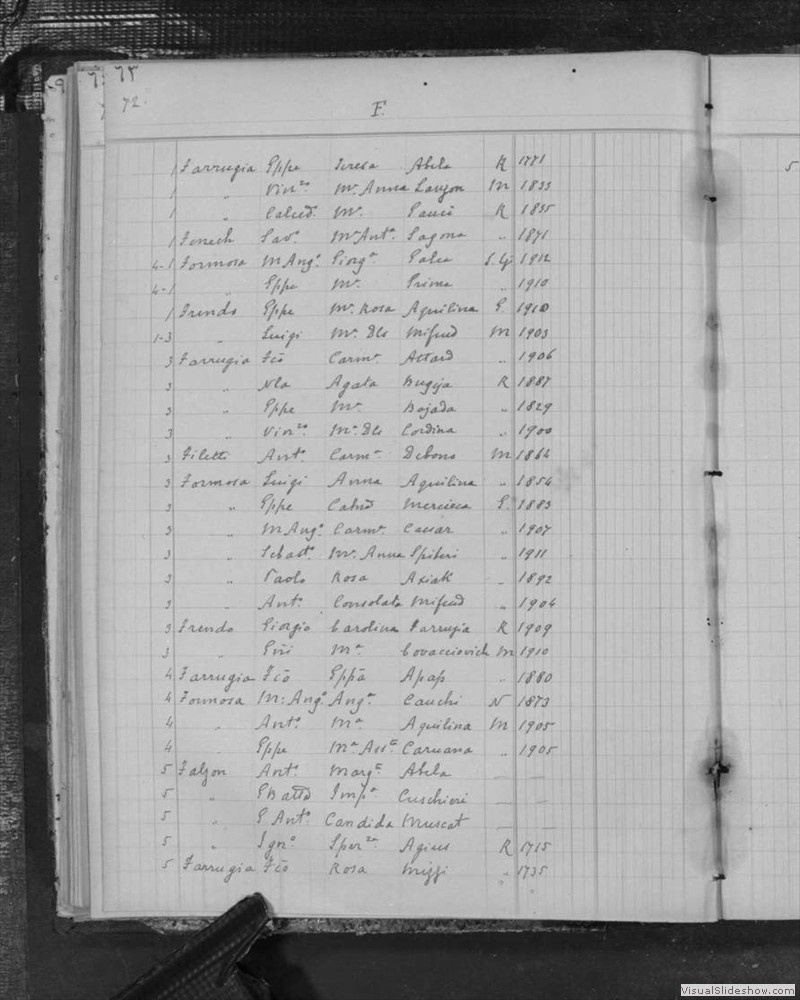 72.
F.
1 Farrugia Gppe Teresa Abela R 1771
1 " Vinzo Ma Anna Lauzon M 1833
1 " Calced. Ma R 1835
1 Fenech Savo Ma Anta Sagona " 1871
4-1 Formosa M Ango Giorga Galea S. Gj 1912
4-1 Gppe Ma Prima " 1910
1 Frendo Gppe Ma Rosa Aquilina G. 1910
1-3 " Luigi Ma Dls Mifsud M 1903
3 Farrugia Fco Carma Attard " 1906
3 " Nla Agata Bugeja R 1887
3 " Gppe Ma Bajada " 1829
3 " Vinzo Ma Dls Cordina " 1900
3 Filetti Anto Carma Debono M 1864
3 Formosa Luigi Anna Aquilina " 1854
3 " Gppe Mercieca G. 1883
3 " M Ango Carma Caesar " 1907
3 " Sebasto Ma Anna Spiteri " 1911
3 " Paolo Rosa Axiak " 1892
3 Anto Consolata Mifsud " 1904
3 Frendo Giorgio Carolina Farrugia R 1909
3 Ma Covacciovich M 1910
4 Farrugia Fco Gppa Apap " 1880
4 Formosa M: Ango Anga Cauchi N 1873
4 " Anto Ma Aquilina M 1905
4 Gppe Ma Assta Caruana " 1905
5 Falzon Anto Margta Abela
5 " G Batta Impa Cuschieri
5 " G Anto Candida Muscat
5 " Ignо Sperza Agius R 1715
5 Farrugia Fco Rosa Mizzi " 1735
5
VisualSlideshow.com